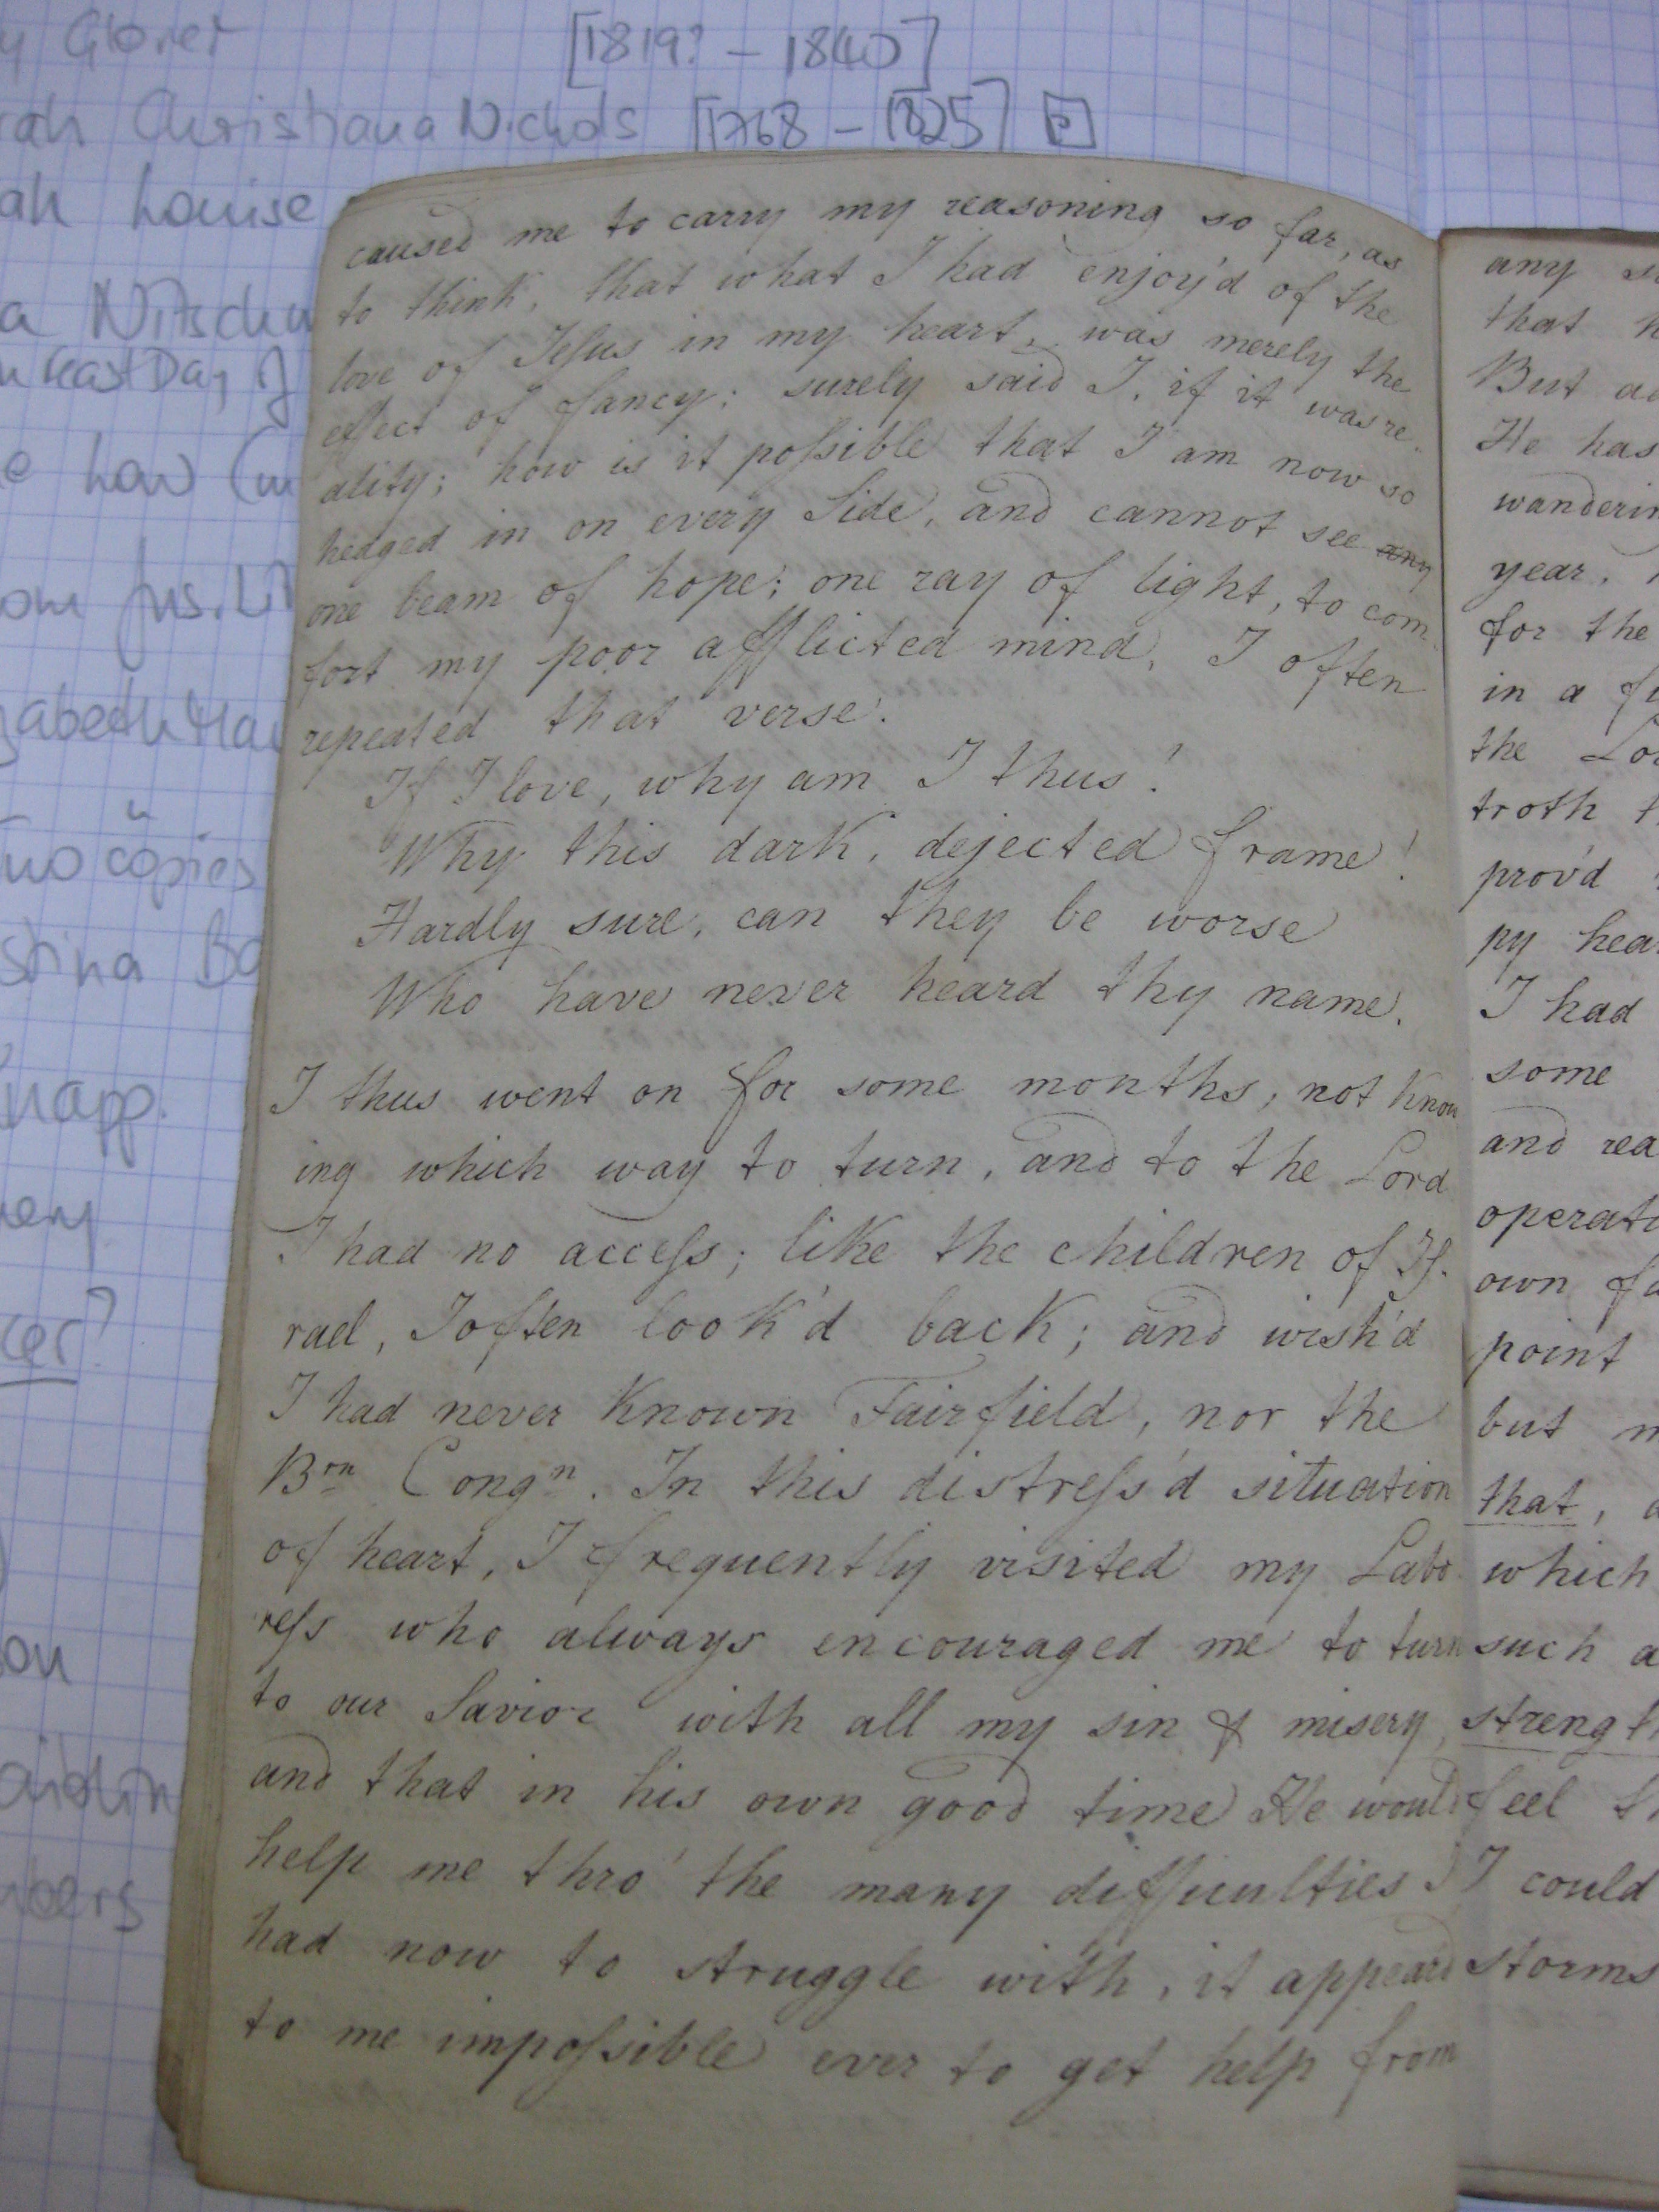 y Glover [1819? - 1840]
rah Christiana Nichols [1768 - 1825] P
ah Louise
a Nitschm
Last Day of
e how
om
zabeth Ha
Two copies
stina Ba
napp.
very
cer?
on
aidin
mbers
caused me to carry my reasoning so far, as
to think, that what I had enjoy'd of the
love of Jeſus in my heart, was merely the
effect of fancy; surely said I, if it was re-
ality; how is it poſsible that I am now so
hedged in on every Side, and cannot see any
one beam of hope; one ray of light, to com-
fort my poor afflicted mind, I often
repeated that verse:
If I love, why am I thus!
Why this dark, dejected frame!
Hardly sure, can they be worse
Who have never heard thy name.
I thus went on for some months, not know
ing which way to turn, and to the Lord
I had no acceſs; like the children of Iſ-
rael, I often look'd back; and wish'd
I had never known Fairfield, nor the
Brn Congn. In this distreſs'd situation
of heart, I frequently visited my Labo-
reſs who always encouraged me to turn
to our Savior with all my sin & misery,
and that in his own good time He would
help me thro' the many difficulties I
had now to struggle with, it appeard
to me impoſsible ever to get help from
any
that
But
He has
wanderin
year,
for the
in a
the Lo
troth
prov'd
py hea
I had
some
and rea
operati
own fa
point
but
that,
which
such a
strength
feel
I could
storms